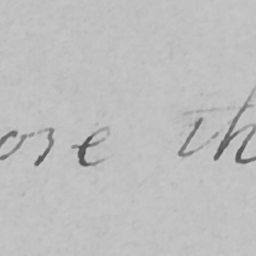 ose th